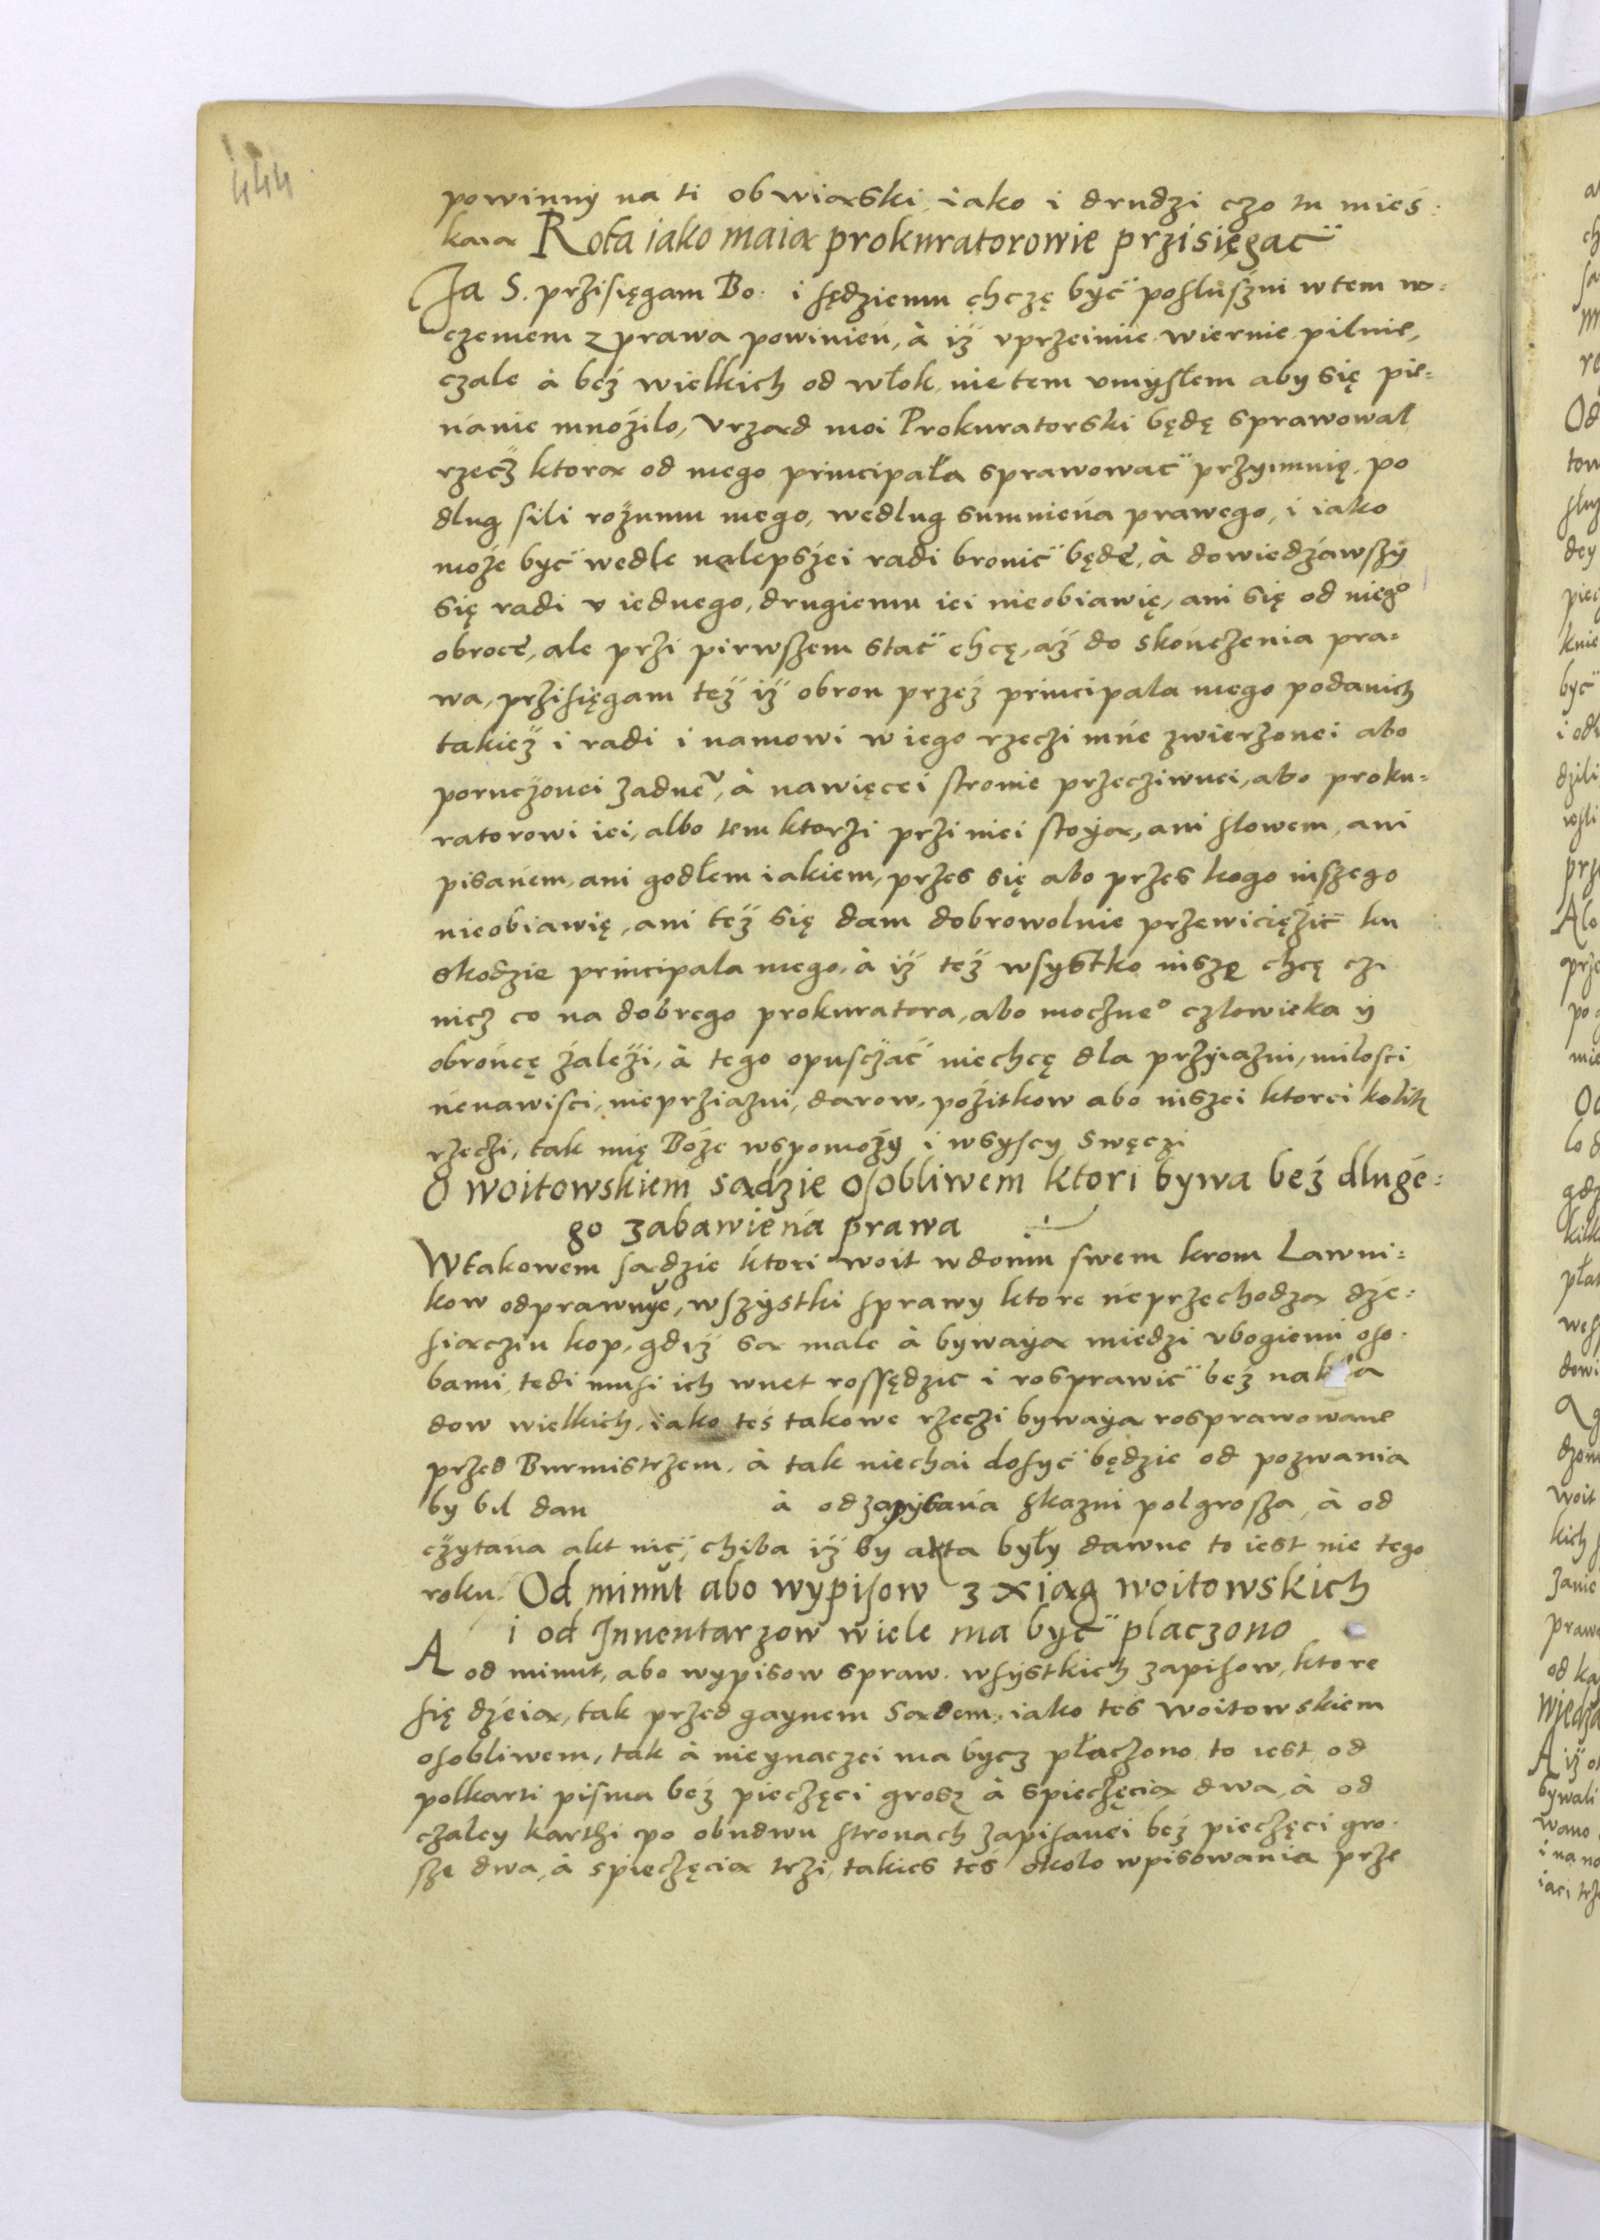 444
powinny na ti obwiąski iako i drudzi czo tu mies:
kaią Rota iako maią prokuratorowie przisięgać
Ja S. przisięgam Bo. i sędziemu chczę być posłuszni wtem w
czemem z prawa powinien, à iż vprzeimie wiernie pilnie,
czale à beż wielkich od włok, nie tem vmysłem aby się pie=
nanie mnożilo, Vrząd moi Prokuratorski będę sprawował
rzecż ktorą od mego principała sprawować przyimnię, po
dlug sili rożumu mego, wedlug sumniena prawego, i iako
może być wedle nalepszei radi bronić będę, à dowiedżawszy
się radi v iednego, drugiemu iei nieobiawię, ani się od niego
obrocę, ale przi pirwszem stać chcę, aż do skończenia pra=
wa, przisięgam też iż obron przeż principala mego podanich
takież i radi i namowi w iego rzeczi mńe zwierzonei abo
poruczonei żadnei, à nawięcei stronie przecziwnei, abo proku=
ratorowi iei, albo tem ktorzi przi niei stoyą, ani słowem, ani
pisańem, ani godłem iakiem, przes się abo przes kogo inszego
nieobiawię, ani też się dam dobrowolnie przewiciężić ku
skodzie principala mego, à iż też wsystko inszę chcę czi
nicz co na dobrego prokuratora, abo mocżneo człowieka y
obrońcę żależi, à tego opusczać niechcę dla przyiazni, miłosci
ńenawisci, nieprziazni, darow, pożitkow abo inszei ktorei kolik
rzeczi, tak mię Boże wspomoży i wsyscy swęczi
O woitowskiem sądzie osobliwem ktori bywa beż dluge=
go zabawieńa prawa
Wtakowem sądzie ktori woit wdomu swem krom Lawni=
kow odprawuye, wszystki sprawy ktore ńeprzechodzą dże=
siącziu kop, gdiż są male à bywayą miedzi vbogiemi oso=
bami, tedi musi ich wnet rossędzic i rosprawić beż nakła
dow wielkich, iako teś takowe rzeczi bywayą rosprawowane
przed Burmistrzem, à tak niechai dosyć będzie od pozwania
by bil dan à od zapisańa skazni polgrosza, à od
czytańa akt nic, chiba iż by akta były dawne to iest nie tego
roku. Od minut abo wypisow z xiąg woitowskich
i od Inuentarzow wiele ma być placzono
A od minut, abo wypisow spraw, wsystkich zapisow, ktore
się dżeią, tak przed gaynem Sądem, iako teś woitowskiem
osobliwem, tak à nieynaczei ma bycz płaczono to iest od
polkarti pisma beż pieczęci grosz à spieczęcią dwa, à od
czaley karthi po obudwu stronach zapisanei beż pieczęci gro=
sze dwa, à spieczęcią trzi, takies teś około wpisowania prze